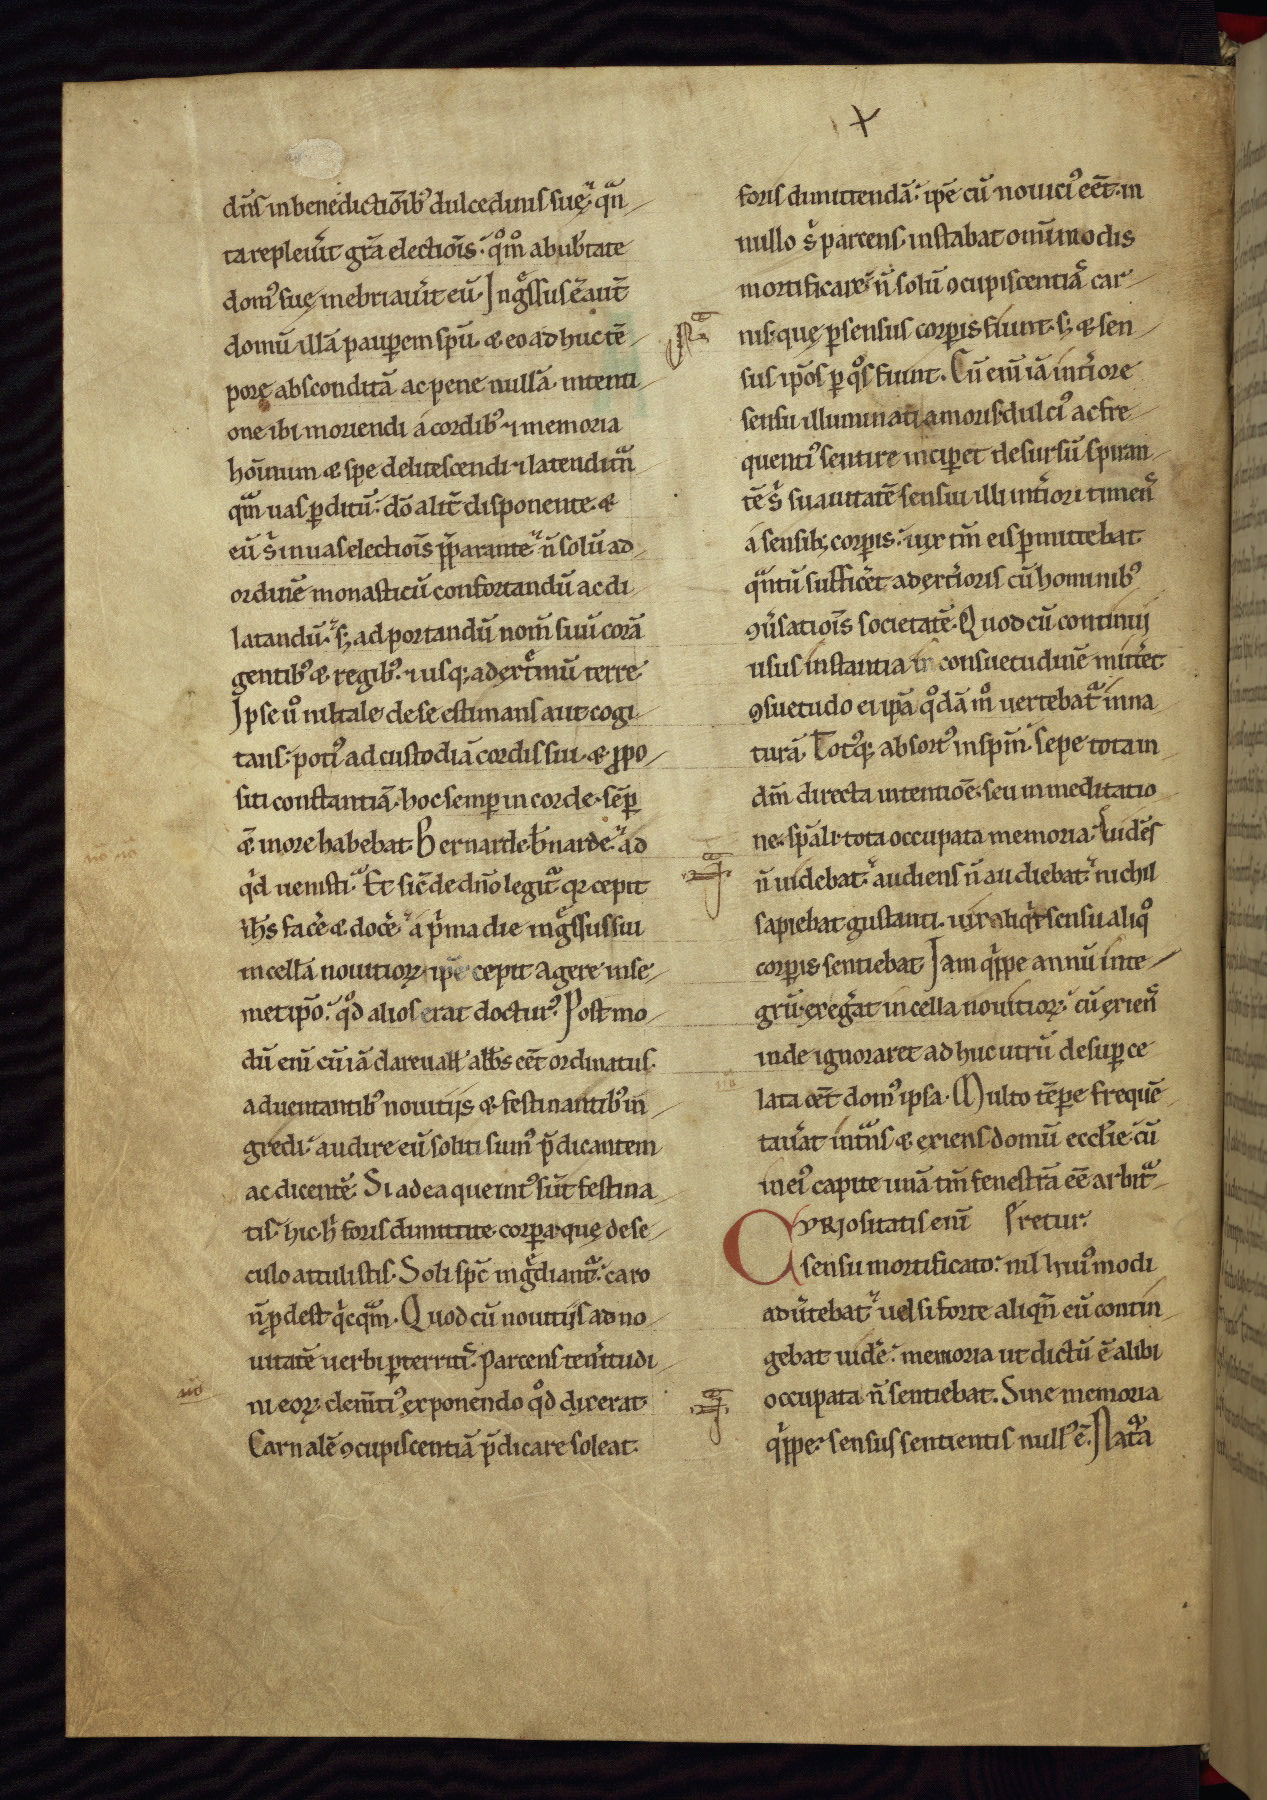 dn̄s in benedictiōib᾽ dulcedinis suę. qͣn
ta repleuͥt gr̄a electiōis. qͦmͦ ab ub̄tate
dom᾽ suę inebriauͥit eū. Ingͤssus ē aut̄
domū illā pauꝑem spū. & eo adhuc tē
pore absconditā ac pene nullā. intenti
one ibi moriendi a cordib᾽ ⁊ memoria
hoīnum & spe delitescendi ⁊ latendi tͣn
qͣm uas ꝑditū. dō alit̄ disponente. &
eū sͥ in uas electiōis p̄parante. n̄ solū ad
ordinē monasticū confortandū ac di
latandū. sꝫ ad portandū nom̄ suū corā
gentib᾽ & regib᾽. ⁊ usqꝫ ad extͤmū terre.
Ipse uͦ nil tale de se estimans aut cogi
tans. poti᾽ ad custodiā cordis sui. & ꝓpo
siti constantiā. hoc semꝑ in corde. sēꝑ
ē in ore habebat. Bernarde b̄narde. ad
qͥd uenisti. Et sic̄ de dn̄o legit᷑ qꝛ cepit
ih̄s facͤe & docͤe. a pͥma die ingͤssus sui
in cellā nouitioꝝ. ip̄e cepit agere in se
met ip̄o. qͦd alios erat doctur᾽. Post mo
dū eni᷑ cū iā clareuall᾽ abb̄s eēt ordinatus.
aduentantib᾽ nouitijs & festinantib᾽ in
gredi. audire eū soliti sum᾽ p̄dicantem
ac dicentē. Si ad ea que int᾽ sūt festina
tis. hic hͥ foris dimittite corpora que de se
culo attulistis. Soli spc̄ ingͤdiant᷑. caro
n̄ ꝓdest qͥcqͣm. Quod cū nouitijs ad no
uitatē uerbi ꝑterritis. parcens ten̄itudi
ni eoꝝ. clem̄ti᾽ exponendo qͦd dixerat.
Carnalē ꝯcupiscentiā p̄dicare soleat
foris dimittendā. ip̄e cū nouici᾽ eēt. in
nullo sͥ parcens. instabat omīmodis
mortificare. n̄ solū ꝯcupiscentiā car
nis. quę ꝑ sensus corꝑis fiunt. sꝫ & sen
sus ip̄os ꝑ qͦs fiunt. Cū eni᷑ iā intͥore
sensu illuminati amoris. dulci᾽ ac fre
quenti᾽ sentire inciꝑet desursū spiran
tē sͥ suauitatē sensui illi intͥori timens
a sensibꝫ corꝑis. uix tm̄ eis ꝑmittebat
qͣntū sufficͤet ad extͤioris cū hominib᾽
ꝯuͤsatiōis societatē. Quod cū continui
usus instantia in consuetudinē mittͤet
ꝯsuetudo ei ipā qͦdā mͦ uertebat᷑ in na
turā. Totusqꝫ absort᾽ in spm̄. spe tota in
dm̄ directa intentiōe. seu in meditatio
ne. sp̄ali tota occupata memoria. uidēs
n̄ uidebat. audiens n̄ audiebat. nichil
sapiebat gustanti. uix aliqͥd sensu aliqͦ
corꝑis sentiebat. Iam qͥppe annū inte
grū exegͤat in cella nouitioꝝ. cū exiens
inde ignoraret adhuc utrū desuꝑ ce
lata eēt dom᾽ ipsa. Multo tēpe frequē
tauͤat intͣns & exiens domū eccl̄ie. cū
in ei᾽ capite unā tm̄ fenestrā eē arbitͣ
Curiositatis eni᷑    retur.
sensu mortificato. nil hui᾽ modi
aduͤtebat. uel si forte aliqn̄ eū contin
gebat uidͤe. memoria ut dictū ē alibi
occupata n̄ sentiebat. Sine memoria
qͥppe. sensus sentientis null᾽ ē. Nat᷑a